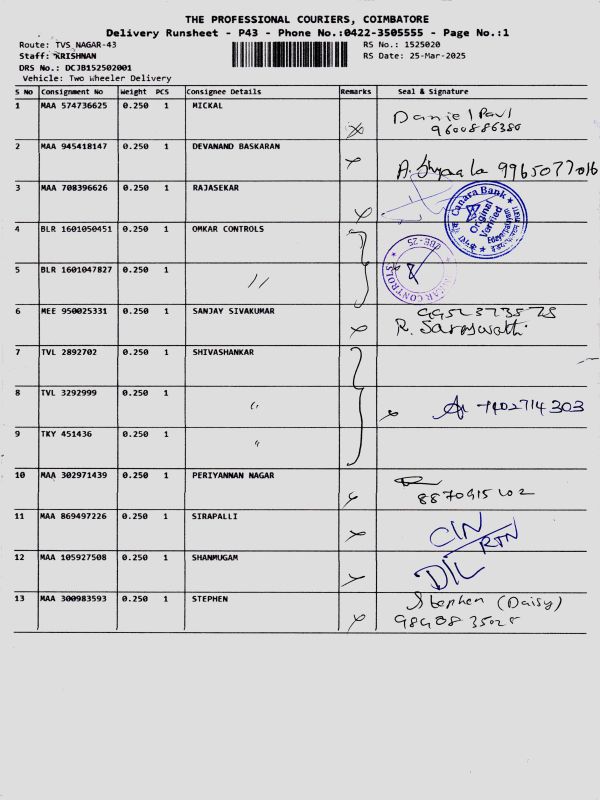 THE PROFESSIONAL COURIERS, COIMBATORE
Delivery Runsheet - P43 - Phone No.:0422-3505555 - Page No.:1
Route: TVS NAGAR-43 RS No.: 1525020
Staff: KRISHNAN RS Date: 25-Mar-2025
DRS No.: DCJB152502001
Vehicle: Two Wheeler Delivery
S No Consignment No Weight PCS Consignee Details Remarks Seal & Signature
1 MAA 574736625 0.250 1 MICKAL Daniel Paul
9600886380
2 MAA 945418147 0.250 1 DEVANAND BASKARAN
9965077016
3 MAA 708396626 0.250 1 RAJASEKAR
Canara Bank
Original
Verified
4 BLR 1601050451 0.250 1 OMKAR CONTROLS
CBE-25
CONTROLS
5 BLR 1601047827 0.250 1 "
6 MEE 950025331 0.250 1 SANJAY SIVAKUMAR
R. Saraswathi
7 TVL 2892702 0.250 1 SHIVASHANKAR
8 TVL 3292999 0.250 1 "
9 TKY 451436 0.250 1 "
10 MAA 302971439 0.250 1 PERIYANNAN NAGAR
11 MAA 869497226 0.250 1 SIRAPALLI
RTN
12 MAA 105927508 0.250 1 SHANMUGAM
D/L
13 MAA 300983593 0.250 1 STEPHEN Stephen (Daisy)